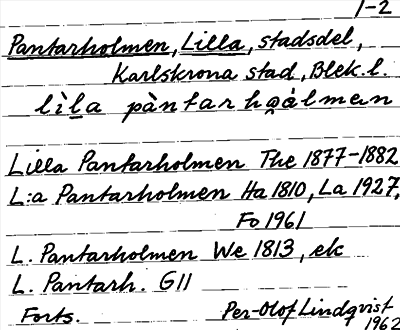 1-2
Pantarholmen, Lilla, stadsdel,
Karlskrona stad, Blek. l.
lìla pàntarhǫ̀lmen
Lilla Pantarholmen The 1877-1882
L:a Pantarholmen Ha 1810, La 1927,
Fo 1961
L. Pantarholmen We 1813, ek
L. Pantarh. G11
Forts. Per-Olof Lindqvist
1962